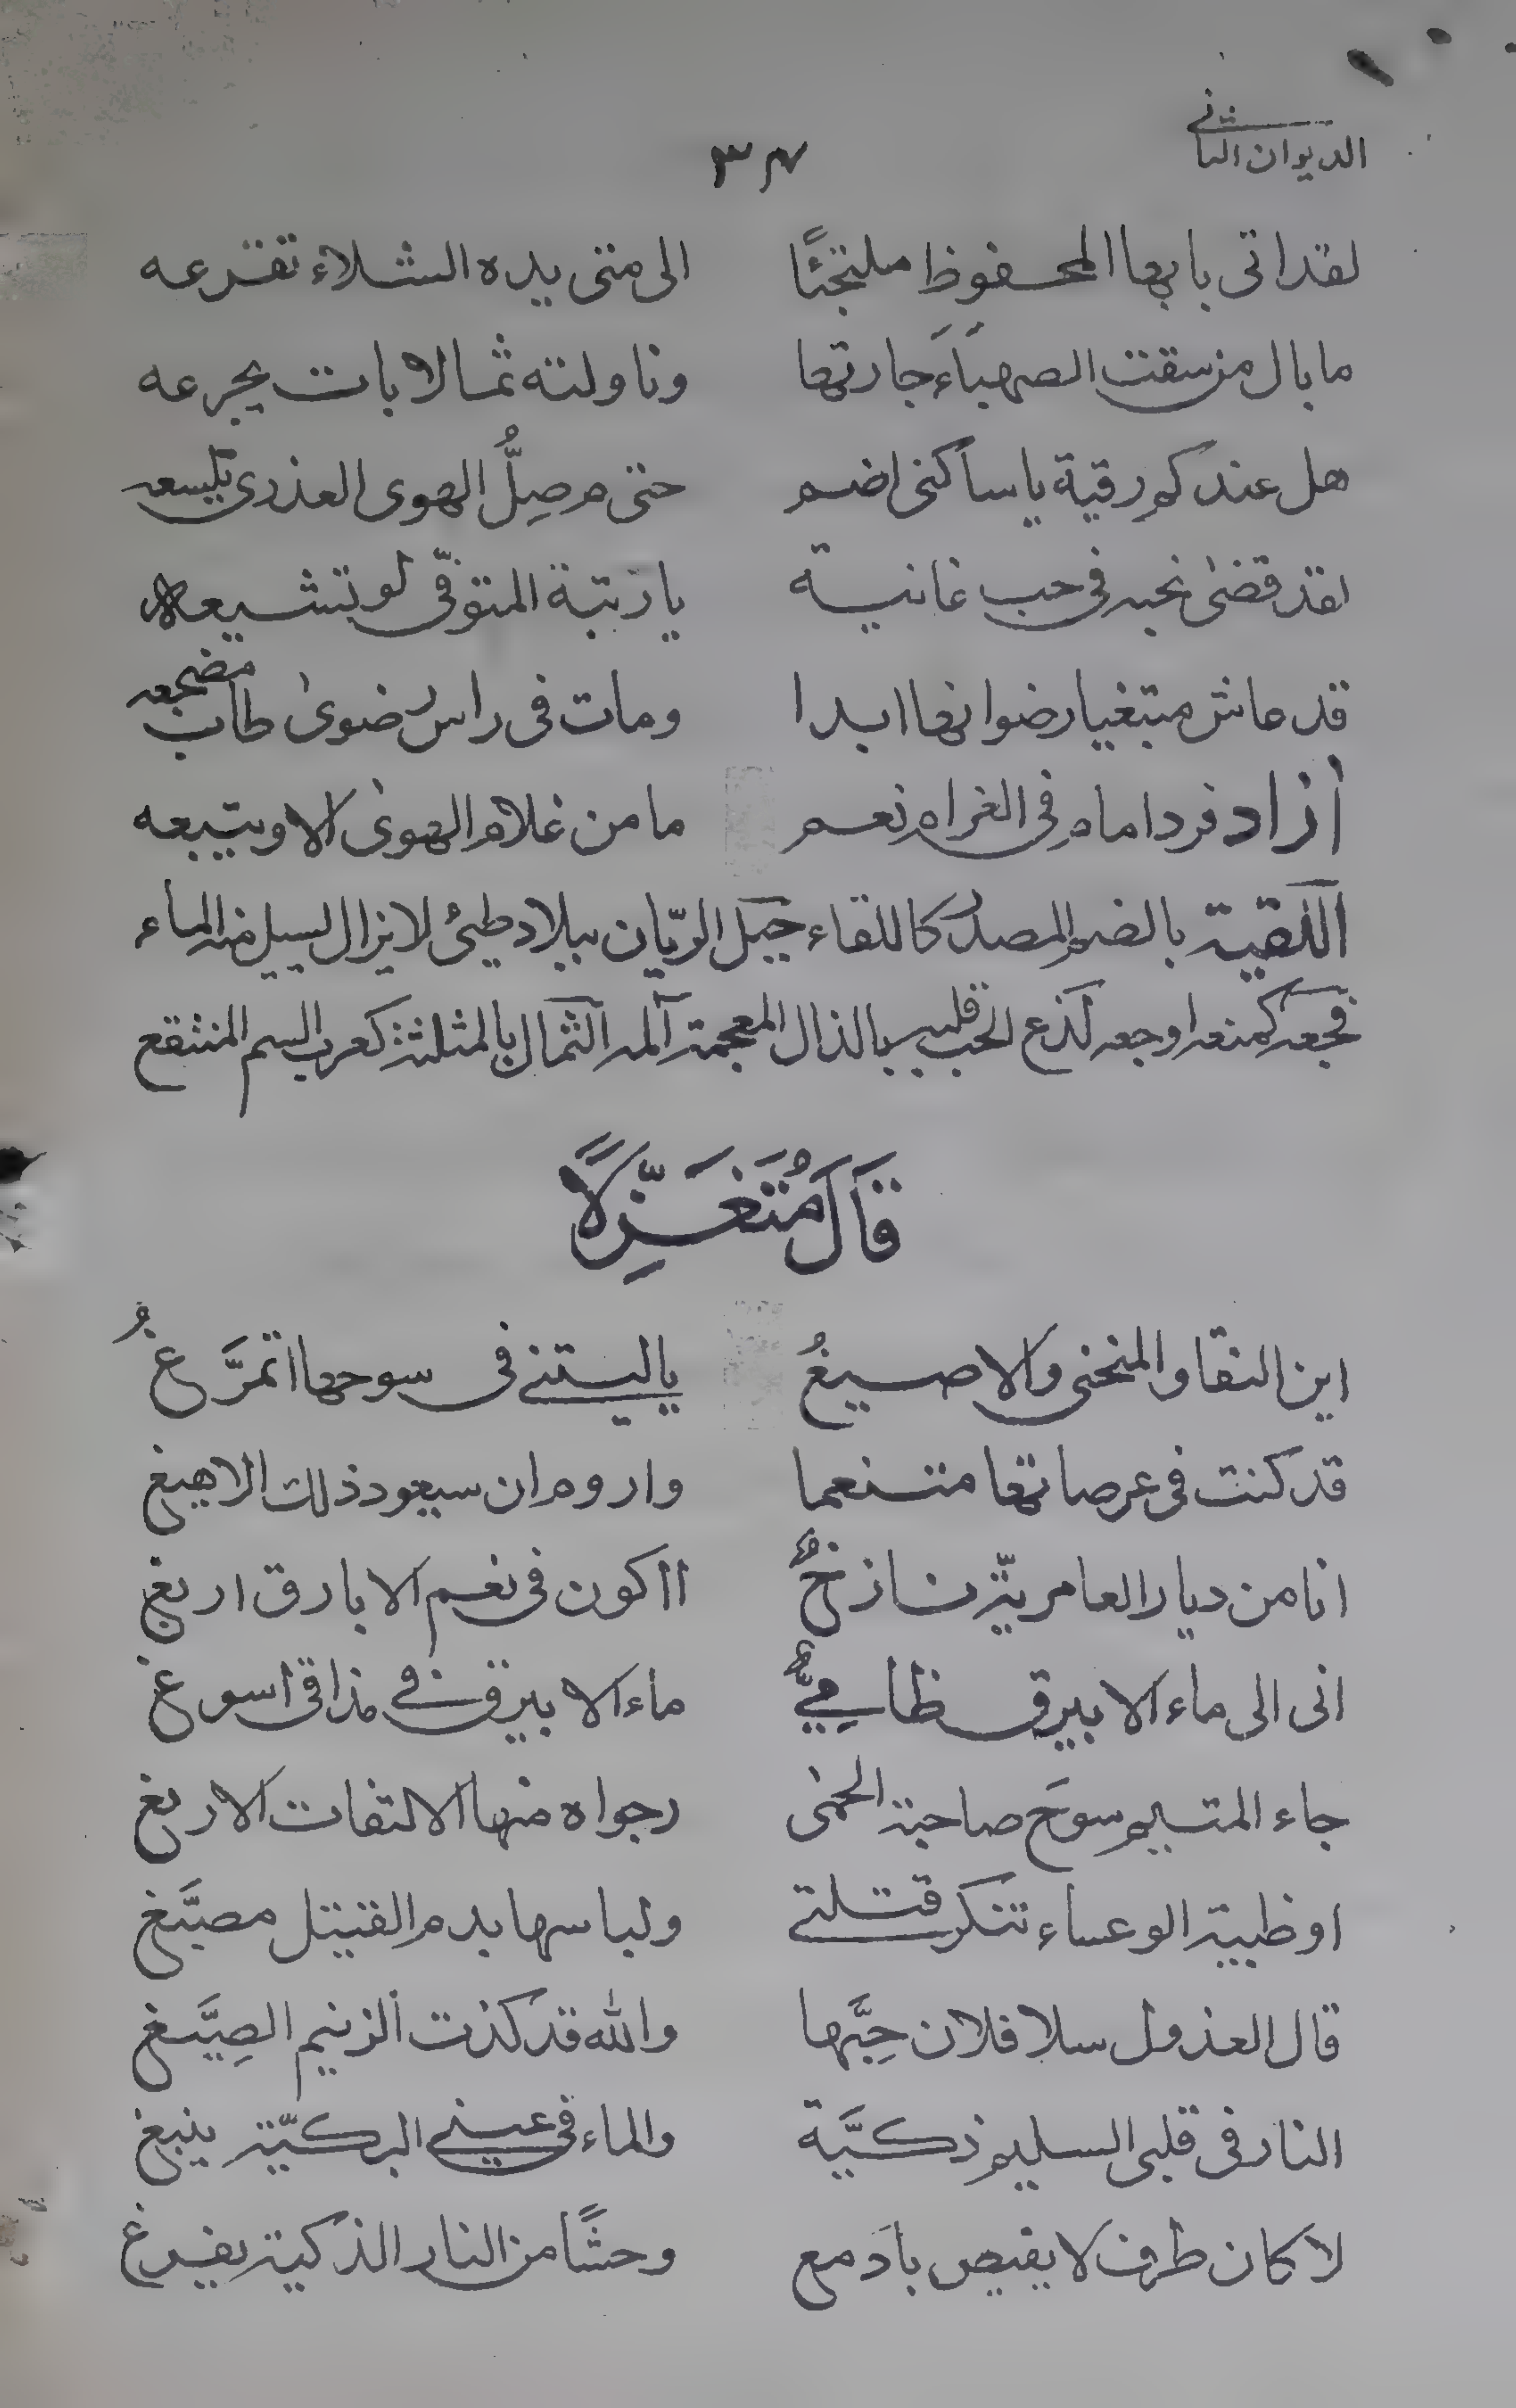 الديوان الثاني
٣٧
لقد اتى بابها المحفوظ ملتجئًا الى متى يده الشلاء تقرعه
ما بال من سقت الصهباءَ جارتها وناولته ثمالا بات يجرعه
هل عندكم رقية يا ساكنى اضم حتى م صِلُّ الهوى العذرى يلسعه
لقد قضىٰ نحبه فى حب غانية يا رتبة المتوفّى لو تشيعه
قد عاش مبتغيا رضوانها ابدا ومات فى راس رضوىٰ طاب مضجعه
أزاد فردا امام فى الغرام نعم ما من غلام الهوىٰ الا ويتبعه
اللقية بالضم المصدر كاللقاء جبل الريّان ببلاد طيئ لا يزال يسيل منه الماء
فجعه كمنعه اوجعه لذع الحب قلبه بالذال المعجمة آلمه الثمال بالمثلثة كغراب السم المنقع
قَالَ مُتَغَزِّلًا
اين النقا والمنحنى والاصيغُ يا ليتنى فى سوحها اتمرَّغُ
قد كنت فى عرصاتها متنعما واروم ان سيعود ذلك الاهيغ
انا من ديار العامرية نازخٌ ااكون فى نعم الابارق اربغ
انى الى ماء الابيرق ظامِئٌ ماء الابيرق فى مذاقى اسوغ
جاء المتيم سوحَ صاحبة الحمىٰ رجواه منها الالتفات الاربغ
او ظبية الوعساء تنكر قتلتى ولباسها بدم القتيل مصبَّغ
قال العذول سلا فلان حِبَّها والله قد كذت الزنيم الصِيَّغ
النار فى قلبى السليم ذكيَّة والماء فى عينى البركيّة ينبغ
لا كان طرف لا يفيض بادمع وحشًا من النار الذكية يفرغ